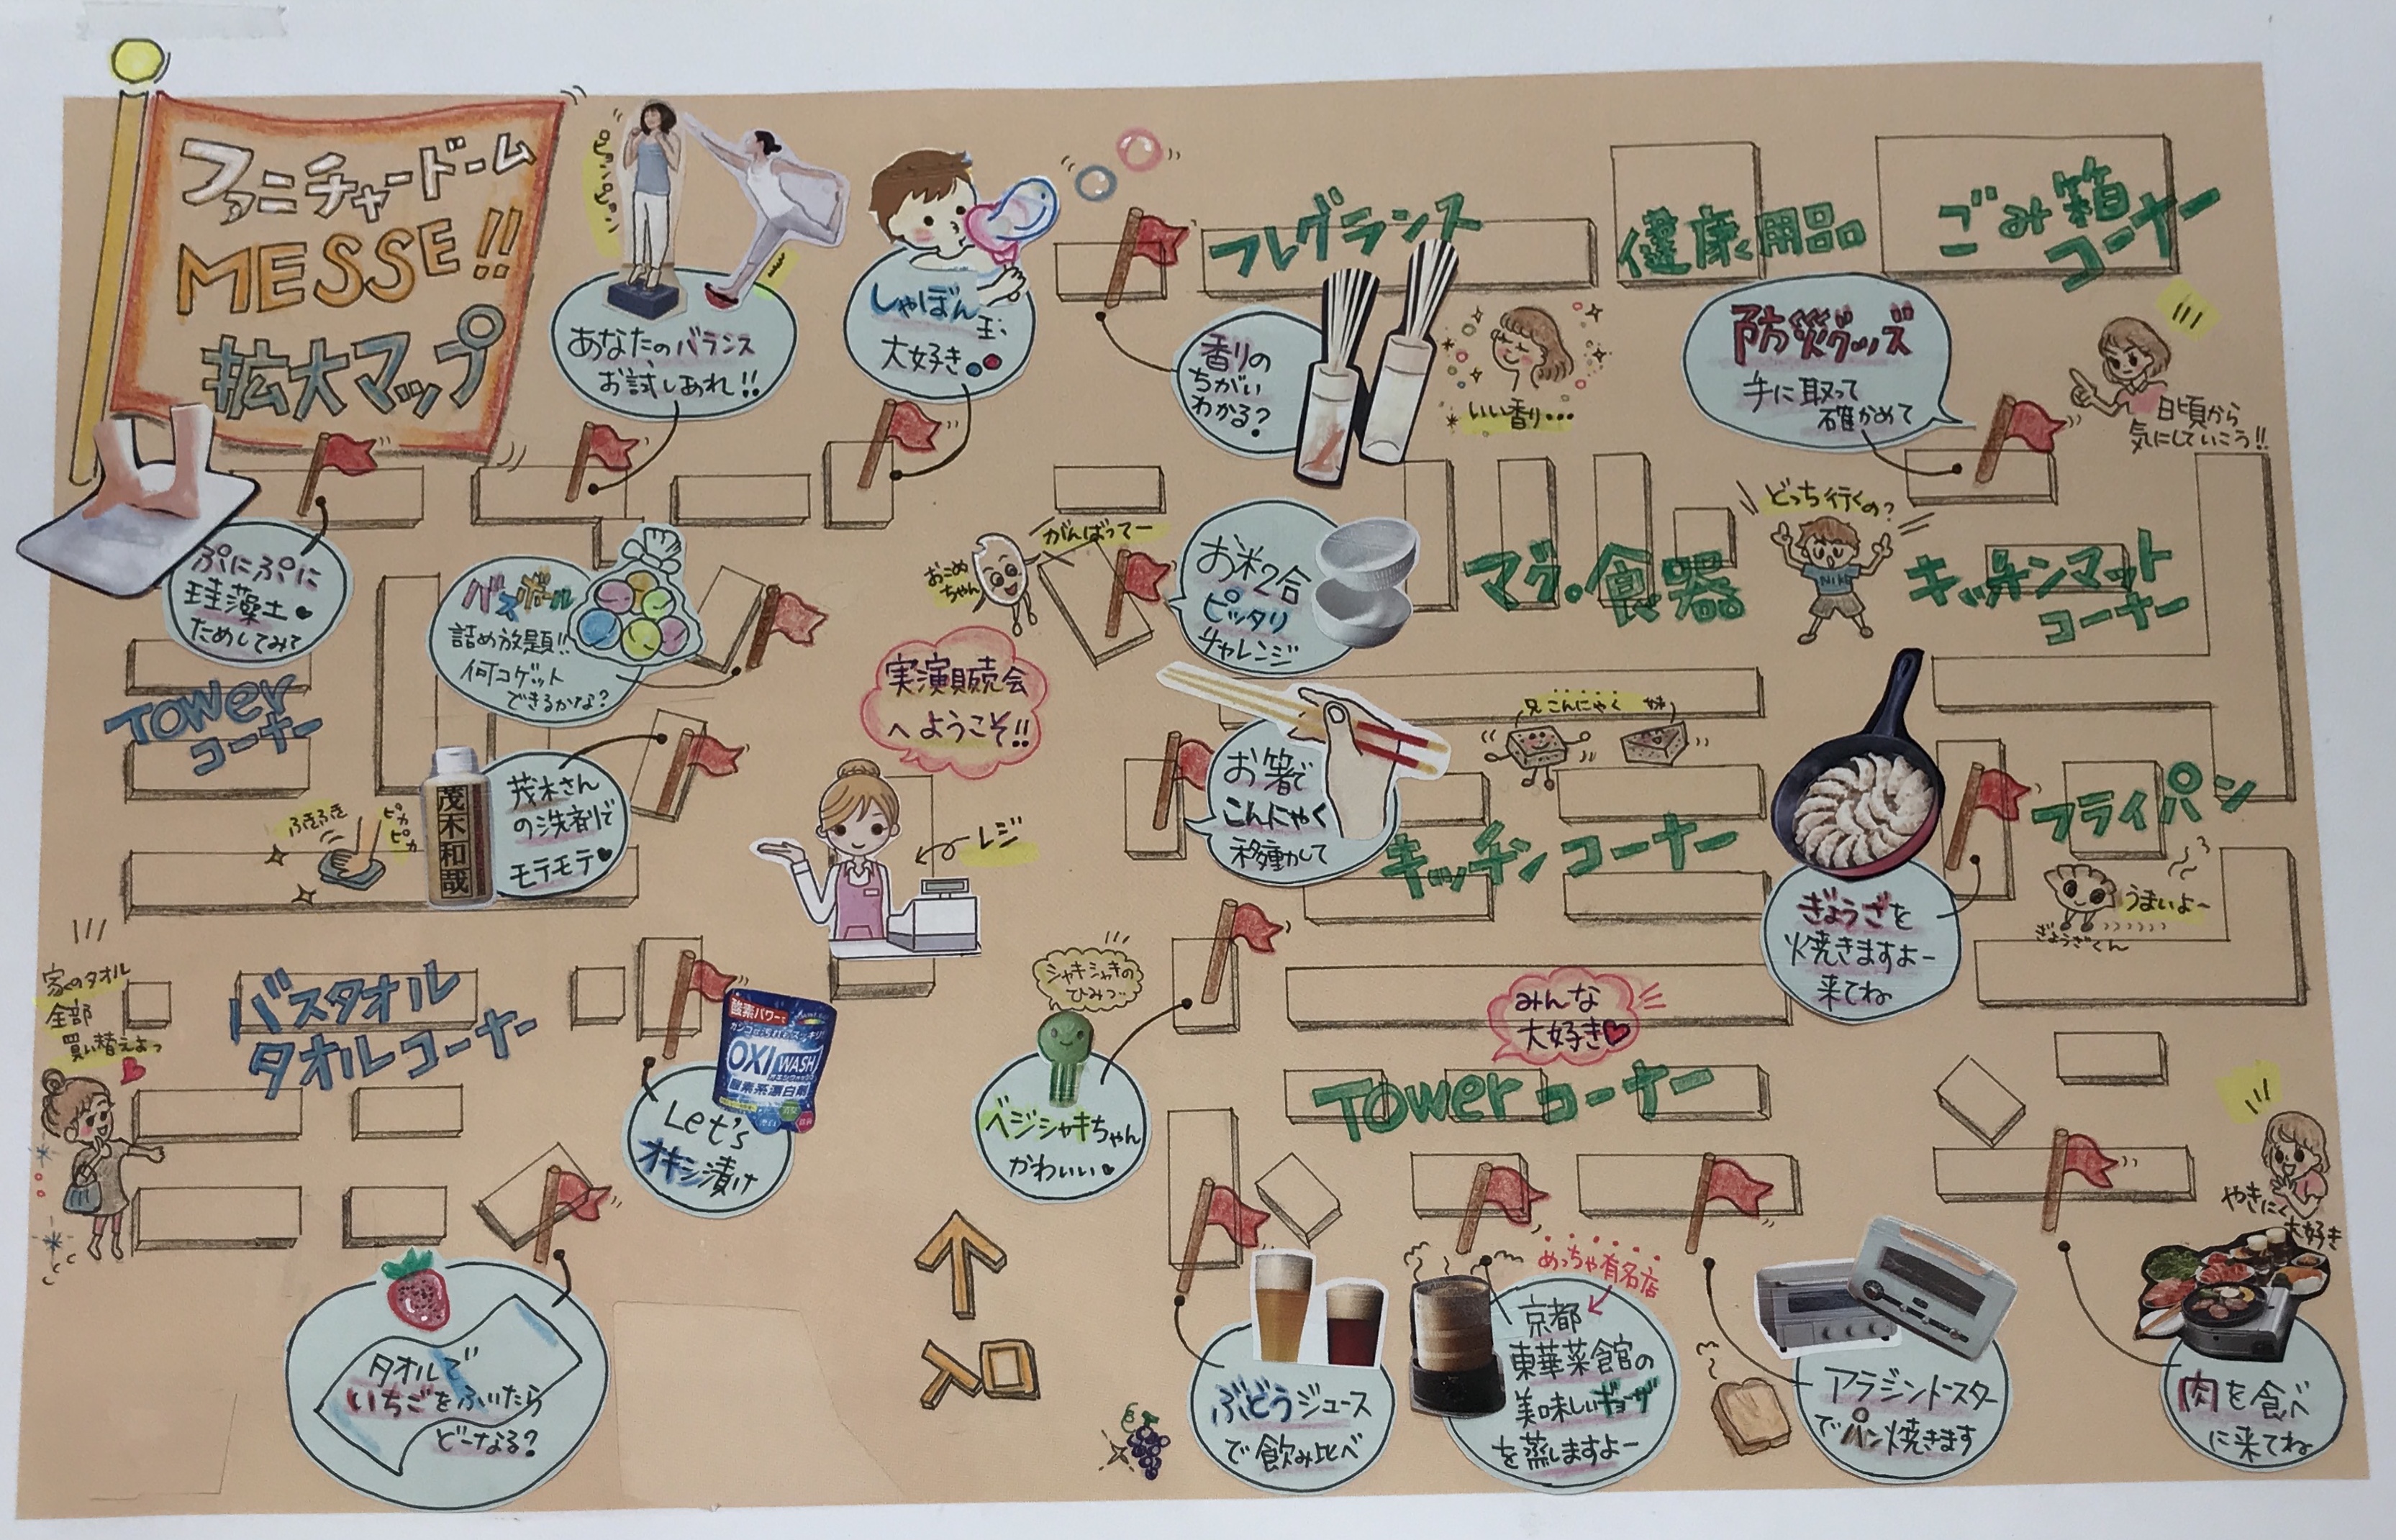 ファニチャードーム
MESSE!!
拡大マップ
ピョンピョン
あなたのバランス
お試しあれ!!
しゃぼん玉
大好き
フレグランス
健康用品
ごみ箱
コーナー
香りの
ちがい
わかる?
いい香り…
防災グッズ
手に取って
確かめて
日頃から
気にしていこう!!
ぷにぷに
珪藻土
ためしてみて
バスボール
詰め放題!!
何コゲット
できるかな?
がんばってー
おこめ
ちゃん
お米2合
ピッタリ
チャレンジ
マグ。食器
どっち行くの?
キッチンマット
コーナー
TOWer
コーナー
実演販売会
へようこそ!!
兄 こんにゃく 妹
お箸で
こんにゃく
移動して
キッチンコーナー
フライパン
茂木さん
の洗剤で
モテモテ
茂木和哉
ふきふき
ピカ
ピカ
レジ
ぎょうざを
火焼きますよー
来てね
うまいよ〜
ぎょうざくん
家のタオル
全部
買い替えよっ
バスタオル
タオルコーナー
酸素パワーで
OXI WASH
酸素系漂白剤
Let's
オキシ漬け
シャキシャキの
ひみつ…
ベジシャキちゃん
かわいい
みんな
大好き
TOWer コーナー
タオルで
いちごをふいたら
どーなる?
入口
ぶどうジュース
で飲み比べ
めっちゃ有名店
京都
東華菜館の
美味しいギョーザ
を蒸しますよー
アラジントースター
でパン焼きます
やきにく
大好き
肉を食べ
に来てね